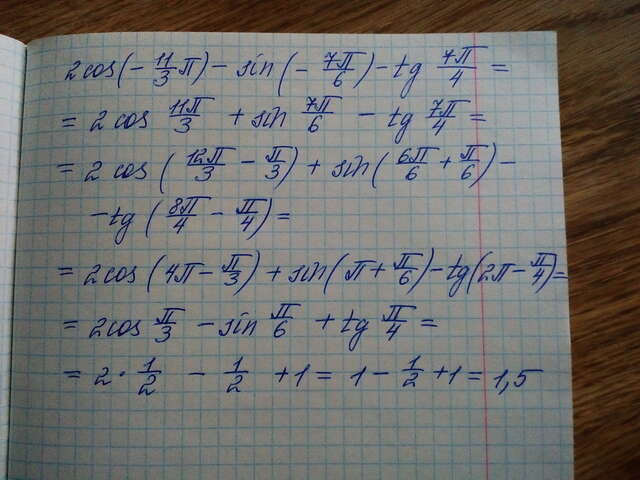 2cos(-11/3 π) - sin(-7π/6) - tg 7π/4 =
= 2cos 11π/3 + sin 7π/6 - tg 7π/4 =
= 2cos(12π/3 - π/3) + sin(6π/6 + π/6) -
- tg(8π/4 - π/4) =
= 2cos(4π - π/3) + sin(π + π/6) - tg(2π - π/4) =
= 2cos π/3 - sin π/6 + tg π/4 =
= 2 · 1/2 - 1/2 + 1 = 1 - 1/2 + 1 = 1,5